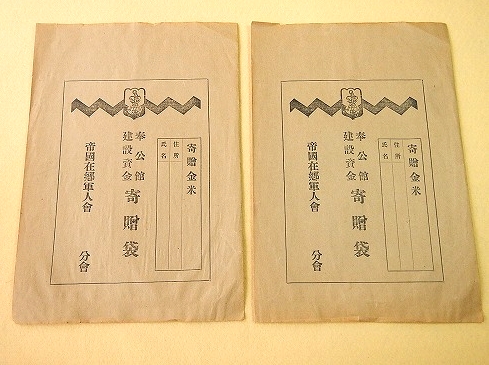 寄贈金米
住所
氏名
奉公館
建設資金
寄贈袋
帝國在郷軍人會 分會
寄贈金米
住所
氏名
奉公館
建設資金
寄贈袋
帝國在郷軍人會 分會